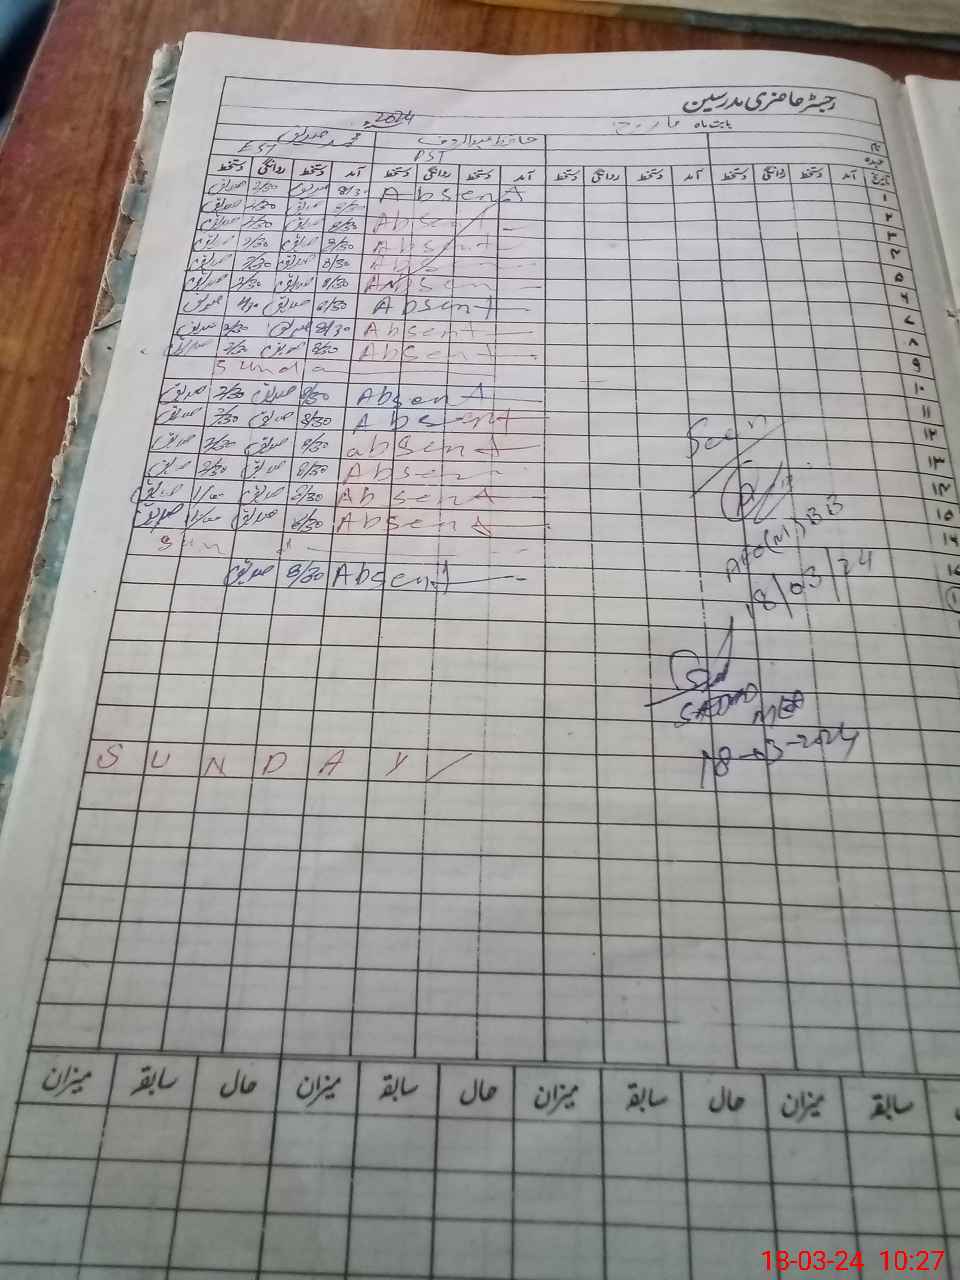 رجسٹر حاضری مدرسین
بابت ماہ مارچ 2024ء
نام حافظ عبدالرؤف محمد صدیق
عہدہ PST EST
تاریخ آمد دستخط روانگی دستخط آمد دستخط روانگی دستخط آمد دستخط روانگی دستخط آمد دستخط روانگی دستخط
۱ Absent 8/30 صدیق 2/30 صدیق
۲ Absent 8/30 صدیق 2/30 صدیق
۳ Absent 8/30 صدیق 2/30 صدیق
۴ Absent 8/30 صدیق 2/30 صدیق
۵ 8/30 صدیق 2/30 صدیق
۶ Absent 8/30 صدیق 2/30 صدیق
۷ Absent 8/30 صدیق صدیق
۸ Absent 8/30 صدیق 2/30 صدیق
۹ Absent 8/30 صدیق 2/30 صدیق
۱۰ Sunda
۱۱ Absent 8/30 صدیق 2/30 صدیق
۱۲ Absent 8/30 صدیق 2/30 صدیق
۱۳ absent 8/30 صدیق 2/30 صدیق
۱۴ Absent 8/30 صدیق 2/30 صدیق
۱۵ Absent 8/30 صدیق 1/00 صدیق
۱۶ Absent 8/30 صدیق 1/00 صدیق
Sun
Absent 8/30 صدیق
Seen
18/03/24
MEA
18-03-2024
SUNDAY
سابقہ میزان حال سابقہ میزان حال سابقہ میزان حال سابقہ میزان
18-03-24 10:27